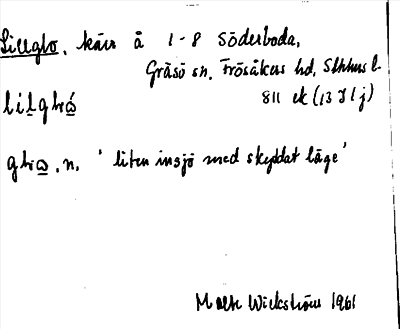 Lillglo, kärr å 1-8 Söderboda,
Gräsö sn, Frösåkers hd, Sthlms l.
811 ek (13 I 1 j)
liḷghώ̱
ghω̱, n, 'liten insjö med skyddat läge'
Malte Wickström 1961